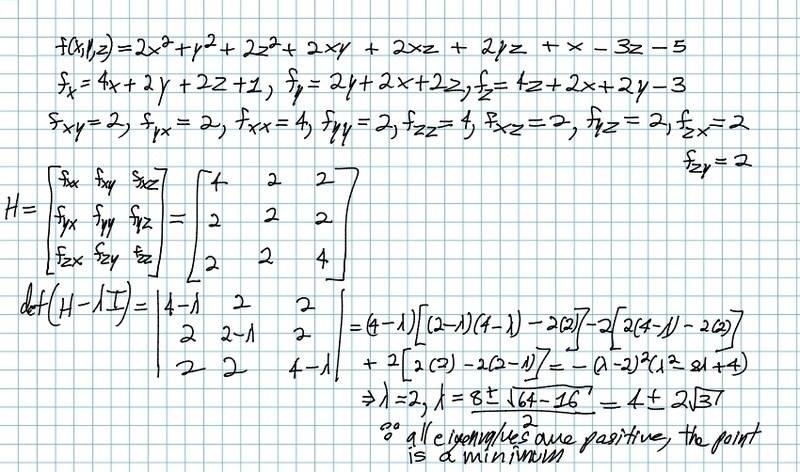 f(x,y,z) = 2x² + y² + 2z² + 2xy + 2xz + 2yz + x − 3z − 5
fx = 4x + 2y + 2z + 1, fy = 2y + 2x + 2z, fz = 4z + 2x + 2y − 3
fxy = 2, fyx = 2, fxx = 4, fyy = 2, fzz = 4, fxz = 2, fyz = 2, fzx = 2
fzy = 2
H = [fxx fxy fxz; fyx fyy fyz; fzx fzy fzz] = [4 2 2; 2 2 2; 2 2 4]
det(H − λI) = |4−λ 2 2; 2 2−λ 2; 2 2 4−λ| = (4−λ)[(2−λ)(4−λ) − 2(2)] − 2[2(4−λ) − 2(2)]
+ 2[2(2) − 2(2−λ)] = −(λ−2)²(λ² − 8λ + 4)
⇒ λ = 2, λ = (8 ± √(64 − 16))/2 = 4 ± 2√3
∴ all eigenvalues are positive, the point
is a minimum